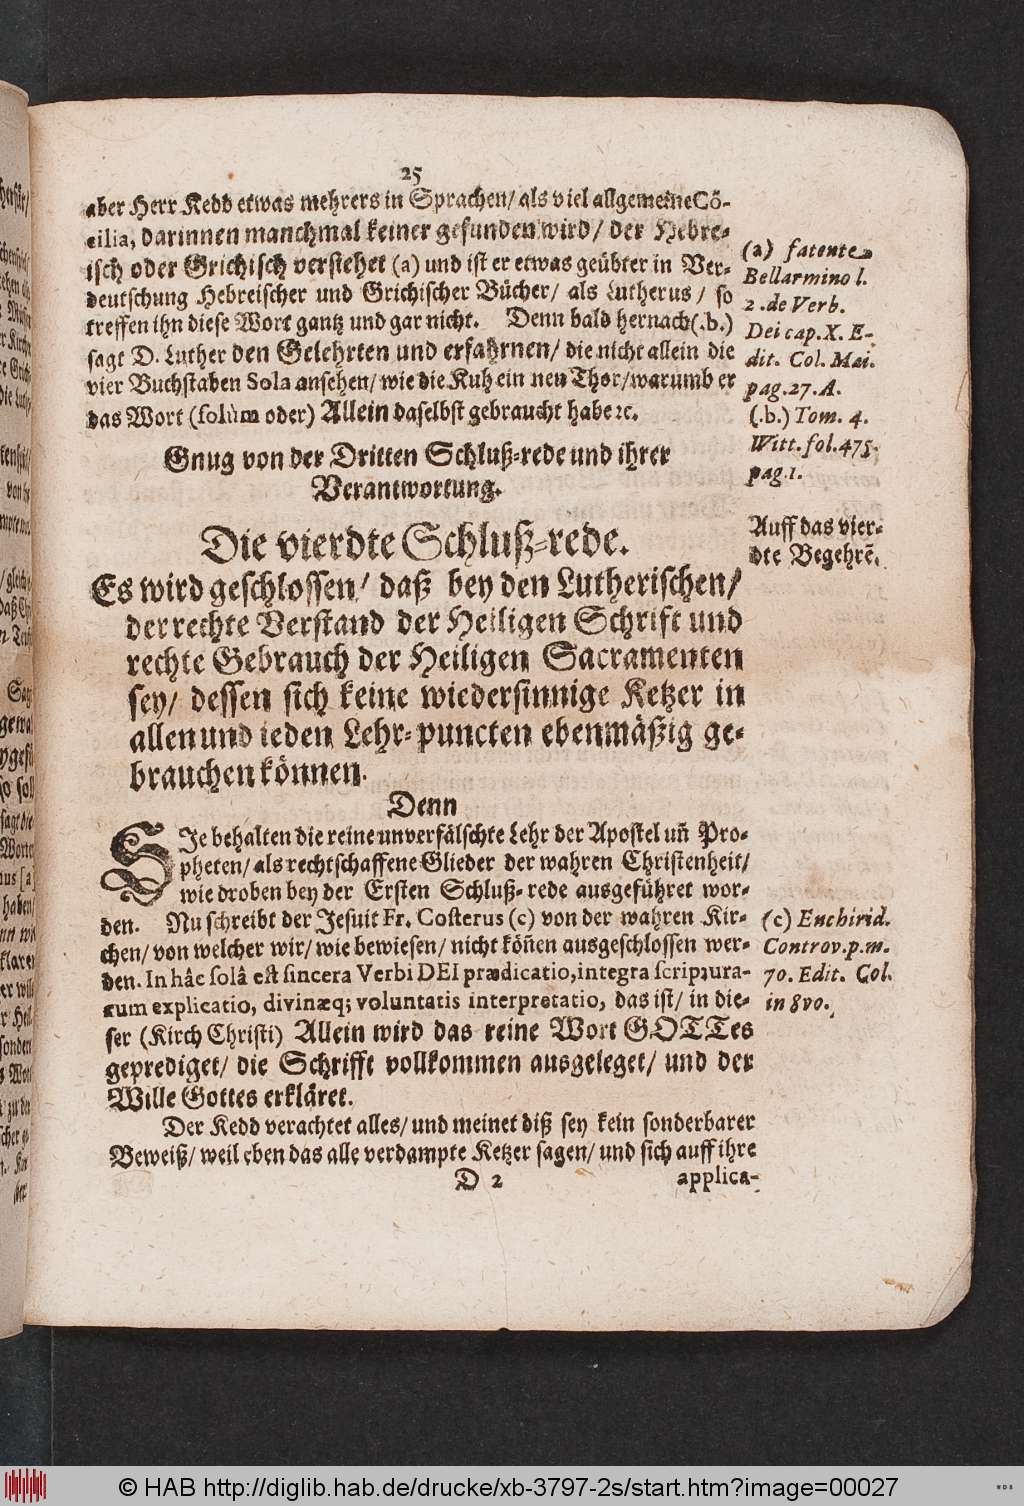 25
aber Herr Kedd etwas mehrers in Sprachen/ als viel allgemeine Cõ-
cilia, darinnen manchmal keiner gefunden wird/ der Hebre-
isch oder Grichisch verstehet (a) und ist er etwas geübter in Ver-
deutschung Hebreischer und Grichischer Bücher/ als Lutherus/ so
treffen ihn diese Wort gantz und gar nicht. Denn bald hernach (.b.)
sagt D. Luther den Gelehrten und erfahrnen/ die nicht allein die
vier Buchstaben Sola ansehen/ wie die Kuh ein neu Thor/ warumb er
das Wort (solùm oder) Allein daselbst gebraucht habe ꝛc.
(a) fatente
Bellarmino l.
2. de Verb.
Dei cap. X. E-
dit. Col. Mai.
pag. 27. A.
(.b.) Tom. 4.
Witt. fol. 475.
pag. 1.
Gnug von der Dritten Schluß-rede und ihrer
Verantwortung.
Die vierdte Schluß-rede.
Auff das vier-
dte Begehrẽ.
Es wird geschlossen/ daß bey den Lutherischen/
der rechte Verstand der Heiligen Schrift und
rechte Gebrauch der Heiligen Sacramenten
sey/ dessen sich keine wiedersinnige Ketzer in
allen und ieden Lehr-puncten ebenmäßig ge-
brauchen können.
Denn
SJe behalten die reine unverfälschte Lehr der Apostel uñ Pro-
pheten/ als rechtschaffene Glieder der wahren Christenheit/
wie droben bey der Ersten Schluß-rede ausgeführet wor-
den. Nu schreibt der Jesuit Fr. Costerus (c) von der wahren Kir-
chen/ von welcher wir/ wie bewiesen/ nicht köñen ausgeschlossen wer-
den. In hâc solâ est sincera Verbi DEI prædicatio, integra scriptura-
rum explicatio, divinæq; voluntatis interpretatio, das ist/ in die-
ser (Kirch Christi) Allein wird das reine Wort GOTTes
geprediget/ die Schrifft vollkommen ausgeleget/ und der
Wille Gottes erkläret.
(c) Enchirid.
Controv. p. m.
70. Edit. Col.
in 8vo.
Der Kedd verachtet alles/ und meinet diß sey kein sonderbarer
Beweiß/ weil eben das alle verdampte Ketzer sagen/ und sich auff ihre
D 2 applica-
© HAB http://diglib.hab.de/drucke/xb-3797-2s/start.htm?image=00027